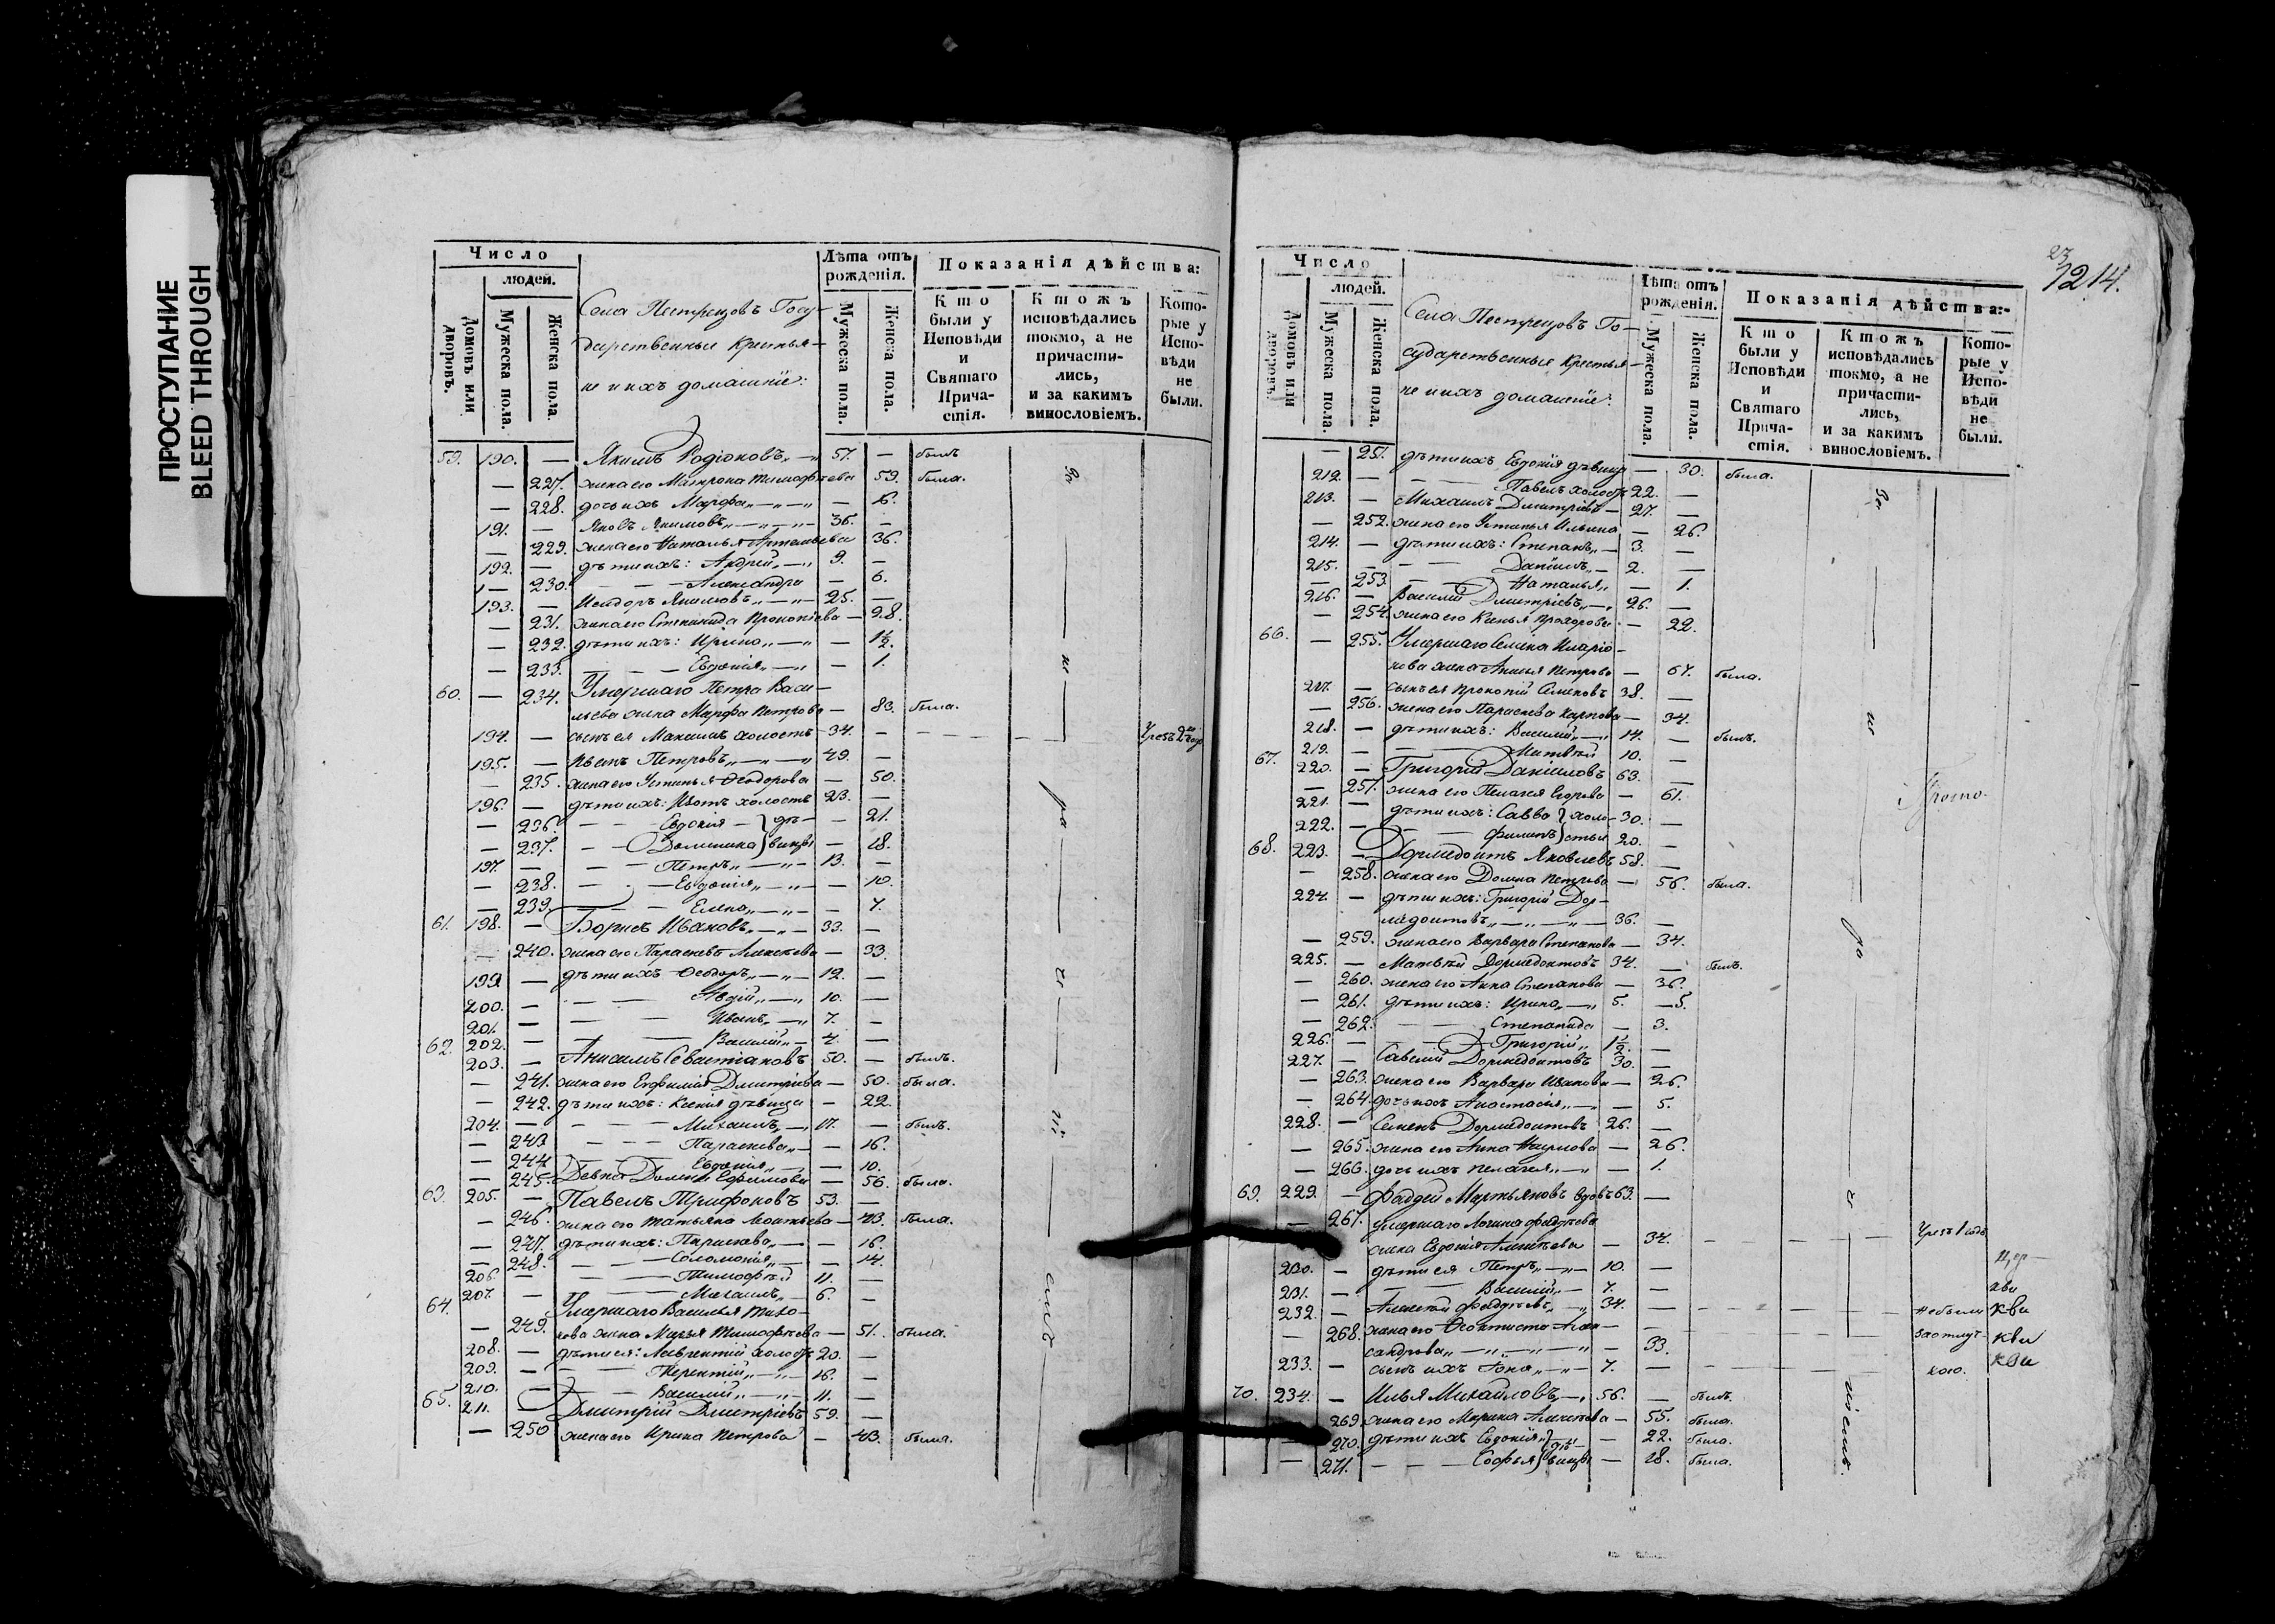 ПРОСТУПАНИЕ
BLEED THROUGH
Число
людей.
Домовъ или дворовъ.
Мужеска пола.
Женска пола.
Села Пестрецовъ Госу-
дарственные крестья-
не и ихъ домашніе:
Лѣта отъ рожденія.
Мужеска пола.
Женска пола.
Показанія дѣйства:
Кто были у Исповѣди и Святаго Прича-стія.
Ктожъ исповѣдались токмо, а не причасти-лись, и за какимъ винословіемъ.
Кото-рые у Испо-вѣди не были.
59. 190. — Якимъ Родіоновъ 57. — былъ
— 227. жена его Матрона Тимофѣева 59. была.
— 228. дочь ихъ Марфа — 16.
191. — Яковъ Якимовъ 36. —
— 229. жена его Наталья Артемьева 36.
192. — дѣти ихъ: Андрей 9. —
— 230. Александра — 6.
193. — Исидоръ Якимовъ 25. —
— 231. жена его Степанида Прокопіева — 28.
— 232. дѣти ихъ: Ирина — 1½.
— 233. Евдокія — 1.
60. — 234. Умершаго Петра Васи-
льева жена Марфа Петрова — 83. была.
194. — сынъ ея Максимъ холостъ 34. —
195. — Иванъ Петровъ 49. —
— 235. жена его Устинья Ѳеодорова — 50.
196. — дѣти ихъ: Изотъ холостъ 23. —
— 236. Евдокія дѣ- — 21.
— 237. Домникіа вицы — 18.
197. — Петръ 13. —
— 238. Евдокія — 10.
— 239. Елена — 7.
61. 198. — Борисъ Ивановъ 33. —
— 240. жена его Параскева Алексѣева — 33.
199. — дѣти ихъ Ѳеодоръ 12. —
200. — Авдій 10. —
201. — Иванъ 7. —
202. — Василій 4. —
62. 203. — Анисимъ Севастіановъ 50. — былъ.
— 241. жена его Евфимія Дмитріева — 50. была.
— 242. дѣти ихъ: Ксенія дѣвица — 22.
204. — Михаилъ 17. — былъ.
— 243 Параскева — 16.
— 244 Евдокія — 10.
— 245. Девка Домна Ефимова — 56. была.
63. 205. — Павелъ Трифоновъ 53. —
— 246. жена его Татьяна Матвѣева — 43. была.
— 247. дѣти ихъ: Параскева — 16.
— 248. Соломонія — 14.
206. — Тимофѣй 11. —
207. — Михаилъ 6. —
64. Умершаго Василья Тихо-
— 249. нова жена Марья Тимофѣева — 51. была.
208. — дѣти ея: Лаврентій холостъ 20. —
209. — Терентій 16. —
210. — Василій 11. —
65. 211. — Дмитрій Дмитріевъ 59. —
— 250 жена его Ирина Петрова — 43. была.
23
1214.
Число
людей.
Домовъ или дворовъ.
Мужеска пола.
Женска пола.
Села Пестрецовъ Го-
сударственные крестья-
не и ихъ домашніе:
Лѣта отъ рожденія.
Мужеска пола.
Женска пола.
Показанія дѣйства:
Кто были у Исповѣди и Святаго Прича-стія.
Ктожъ исповѣдались токмо, а не причасти-лись, и за какимъ винословіемъ.
Кото-рые у Испо-вѣди не были.
— 251. дѣти ихъ Евдокія дѣвица — 30. была.
212. — Павелъ холостъ 22. —
213. — Михаилъ Дмитріевъ 27. —
— 252. жена его Устинья Ильина — 26.
214. — дѣти ихъ: Степанъ 3. —
215. — Даніилъ 2. —
— 253. Наталья — 1.
216. — Василій Дмитріевъ 26. —
— 254. жена его Ксенья Прохорова — 22.
66. — 255. Умершаго Семена Иларіо-
нова жена Аксинья Петрова — 67. была.
217. — сынъ ея Прокопій Семеновъ 38. —
— 256. жена его Параскева Карпова — 34.
218. — дѣти ихъ: Василій 14. — былъ.
219. — Матвѣй 10. —
67. 220. — Григорій Даніиловъ 63. —
— 257. жена его Пелагея Егорова — 61.
221. — дѣти ихъ: Савва холо- 30. —
222. — Филипъ стые 20. —
68. 223. — Дормедонтъ Яковлевъ 58. —
— 258. жена его Домна Петрова — 56. была.
224. — дѣти ихъ: Григорій Дор-
медонтовъ 36. —
— 259. жена его Варвара Степанова — 34.
225. — Матвѣй Дормедонтовъ 34. — былъ.
— 260. жена его Анна Степанова — 36.
— 261. дѣти ихъ: Ирина 5. — 5.
— 262. Степанида — 3.
226. — Григорій 1½. —
227. — Савелій Дормедонтовъ 30. —
— 263. жена его Варвара Иванова — 26.
— 264. дочь ихъ Анастасія — 5.
228. — Семенъ Дормедонтовъ 26. —
— 265. жена его Анна Наумова — 26.
— 266. дочь ихъ Пелагея — 1.
69. 229. — Фаддей Мартьяновъ вдовъ 63. —
— 267. умершаго Логина Фаддѣева
жена Евдокія Алексѣева — 34. Чрезъ 1 годъ
230. — дѣти ея Петръ 10. —
231. — Василій 7. —
232. — Алексѣй Фаддѣевъ 34. — не были
— 268. жена его Ѳеоктиста Алек-
сандрова — 33. за отлуч-
233. — сынъ ихъ Іона 7. — кою.
70. 234. — Илья Михайловъ 56. — былъ.
— 269. жена его Марина Алексѣева — 55. была.
— 270. дѣти ихъ Евдокія дѣ- — 22. была.
— 271. Софья вицы — 18. была.